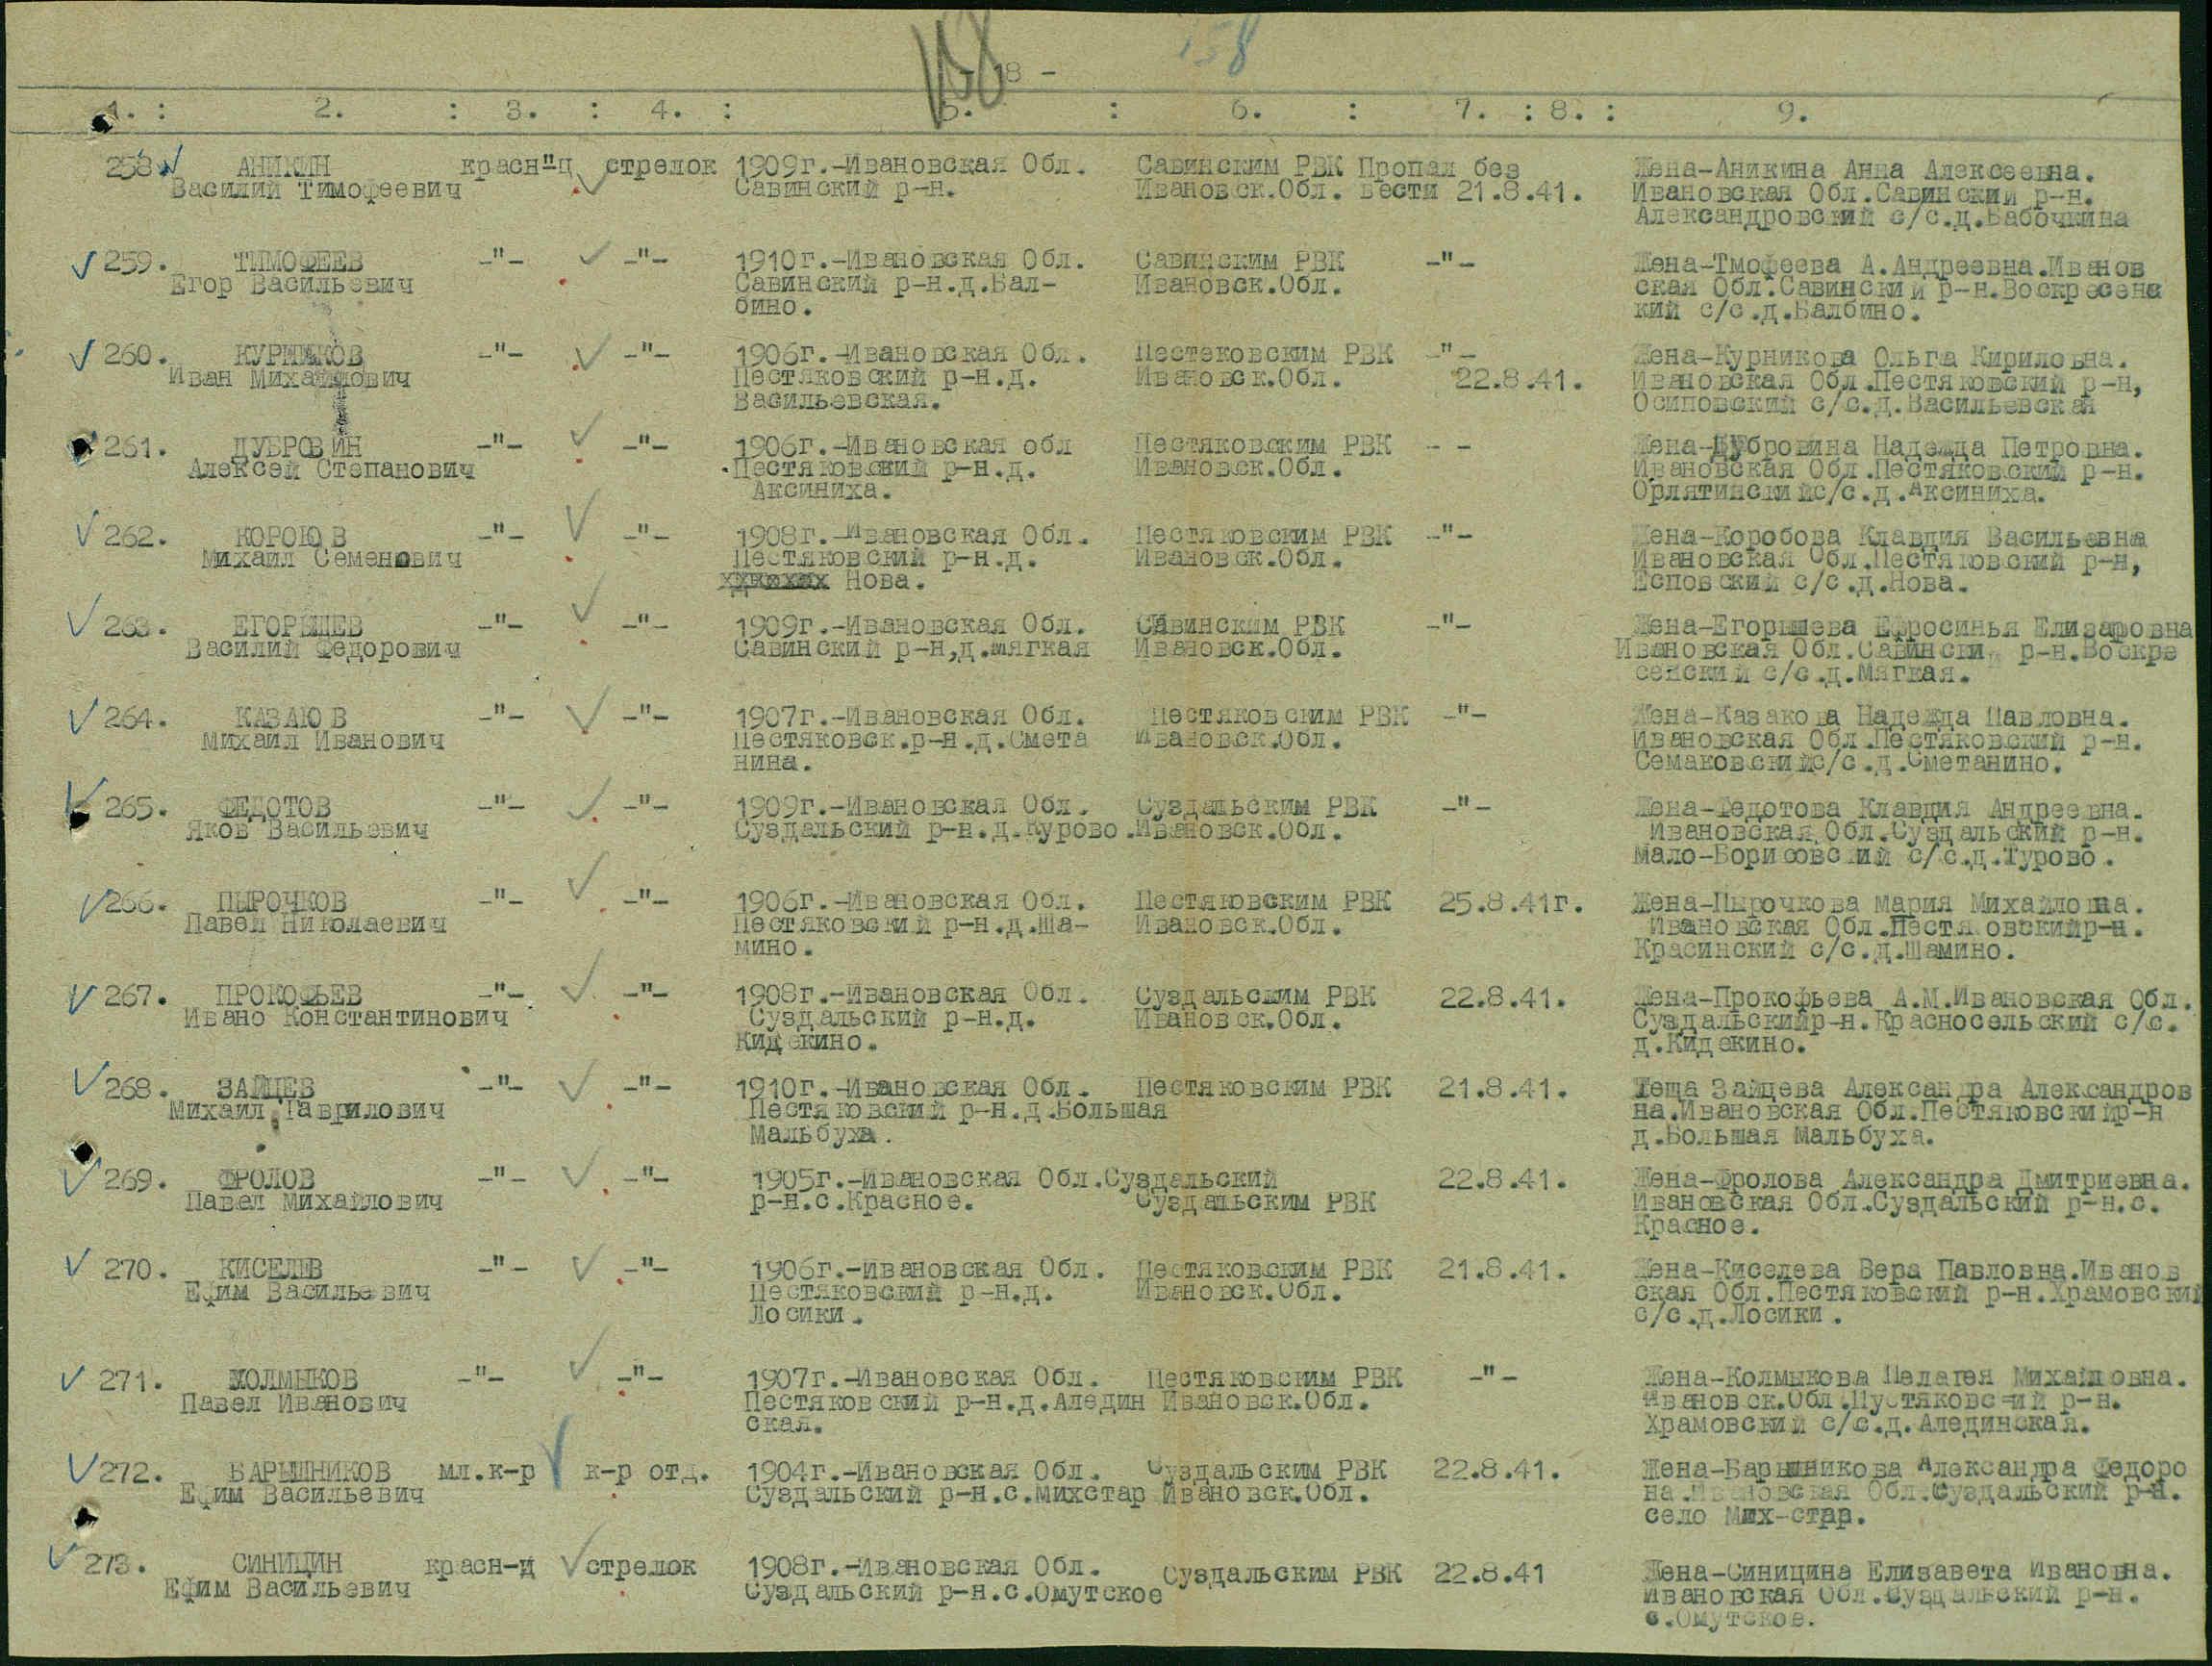 158
158
18 -
1. : 2. : 3. : 4. : 5. : 6. : 7. : 8. : 9.
258. АНИКИН красн-ц стрелок 1909г.-Ивановская Обл. Савинским РВК Пропал без Жена-Аникина Анна Алексеевна.
Василий Тимофеевич Савинский р-н. Ивановск.Обл. вести 21.8.41. Ивановская Обл.Савинский р-н.
Александровский с/с.д.Бабочкина
259. ТИМОФЕЕВ -"- -"- 1910г.-Ивановская Обл. Савинским РВК -"- Жена-Тмофеева А.Андреевна.Иванов
Егор Васильевич Савинский р-н.д.Бал- Ивановск.Обл. ская Обл.Савинский р-н.Воскресенс
бино. кий с/с.д.Балбино.
260. КУРНИКОВ -"- -"- 1906г.-Ивановская Обл. Пестековским РВК -"- Жена-Курникова Ольга Кириловна.
Иван Михайлович Пестяковский р-н.д. Ивановск.Обл. 22.8.41. Ивановская Обл.Пестяковский р-н,
Васильевская. Осиповский с/с.д.Васильевская
261. ДУБРОВИН -"- -"- 1906г.-Ивановская обл Пестяковским РВК - - Жена-Дубровина Надежда Петровна.
Алексей Степанович Пестяковский р-н.д. Ивановск.Обл. Ивановская Обл.Пестяковский р-н.
Аксиниха. Орлятинскийс/с.д.Аксиниха.
262. КОРОЮВ -"- -"- 1908г.-Ивановская Обл. Пестяковским РВК -"- Жена-Коробова Клавдия Васильевна
Михаил Семенович Пестяковский р-н.д. Ивановск.Обл. Ивановская Обл.Пестяковский р-н,
Нова. Есповский с/с.д.Нова.
263. ЕГОРЫШЕВ -"- -"- 1909г.-Ивановская Обл. Савинским РВК -"- Жена-Егорышева Ефросинья Елизаровна
Василий Федорович Савинский р-н,д.мягкая Ивановск.Обл. Ивановская Обл.Савински р-н.Воскре
сенский с/с.д.Мягкая.
264. КАЗАЮВ -"- -"- 1907г.-Ивановская Обл. Пестяковским РВК -"- Жена-Казакова Надежда Павловна.
Михаил Иванович Пестяковск.р-н.д.Смета Ивановск.Обл. Ивановская Обл.Пестяковский р-н.
нина. Семаковскийс/с.д.Сметанино.
265. ФЕДОТОВ -"- -"- 1909г.-Ивановская Обл. Суздальским РВК -"- Жена-Федотова Клавдия Андреевна.
Яков Васильевич Суздальский р-н.д.Курово.Ивановск.Обл. Ивановская Обл.Суздальский р-н.
Мало-Борисовский с/с.д.Турово.
266. ПЫРОЧКОВ -"- -"- 1906г.-Ивановская Обл. Пестяковским РВК 25.8.41г. Жена-Пырочкова Мария Михайловна.
Павел Николаевич Пестяковский р-н.д.Ша- Ивановск.Обл. Ивановская Обл.Пестя овскийр-н.
мино. Красинский с/с.д.Шамино.
267. ПРОКОФЬЕВ -"- -"- 1908г.-Ивановская Обл. Суздальским РВК 22.8.41. Жена-Прокофьева А.М.Ивановская Обл.
Ивано Константинович Суздальский р-н.д. Ивановск.Обл. Суздальскийр-н.Красносельский с/с.
Кидекино. д.Кидекино.
268. ЗАЙЦЕВ -"- -"- 1910г.-Ивановская Обл. Пестяковским РВК 21.8.41. Теща Зайцева Александра Александров
Михаил Гаврилович Пестяковский р-н.д.Большая на.Ивановская Обл.Пестяковскийр-н
Мальбуха. д.Большая Мальбуха.
269. ФРОЛОВ -"- -"- 1905г.-Ивановская Обл.Суздальский 22.8.41. Жена-Фролова Александра Дмитриевна.
Павел Михайлович р-н.с.Красное. Суздальским РВК Ивановская Обл.Суздальский р-н.с.
Красное.
270. КИСЕЛЕВ -"- -"- 1906г.-Ивановская Обл. Пестяковским РВК 21.8.41. Жена-Киселева Вера Павловна.Иванов
Ефим Васильевич Пестяковский р-н.д. Ивановск.Обл. ская Обл.Пестяковский р-н.Храмовский
Лосики. с/с.д.Лосики.
271. КОЛМЫКОВ -"- -"- 1907г.-Ивановская Обл. Пестяковским РВК -"- Жена-Колмыкова Пелагея Михайловна.
Павел Иванович Пестяковский р-н.д.Аледин Ивановск.Обл. Ивановск.Обл.Пустяковс-ий р-н.
ская. Храмовский с/с.д.Алединская.
272. БАРЫШНИКОВ мл.к-р к-р отд. 1904г.-Ивановская Обл. Суздальским РВК 22.8.41. Жена-Барышникова Александра Федоро
Ефим Васильевич Суздальский р-н.с.Михстар Ивановск.Обл. на.Ивановская Обл.Суздальский р-н.
село Мих-стар.
273. СИНИЦИН красн-ц стрелок 1908г.-Ивановская Обл. Суздальским РВК 22.8.41 Жена-Синицина Елизавета Ивановна.
Ефим Васильевич Суздальский р-н.с.Омутское Ивановская Обл.Суздальский р-н.
с.Омутское.